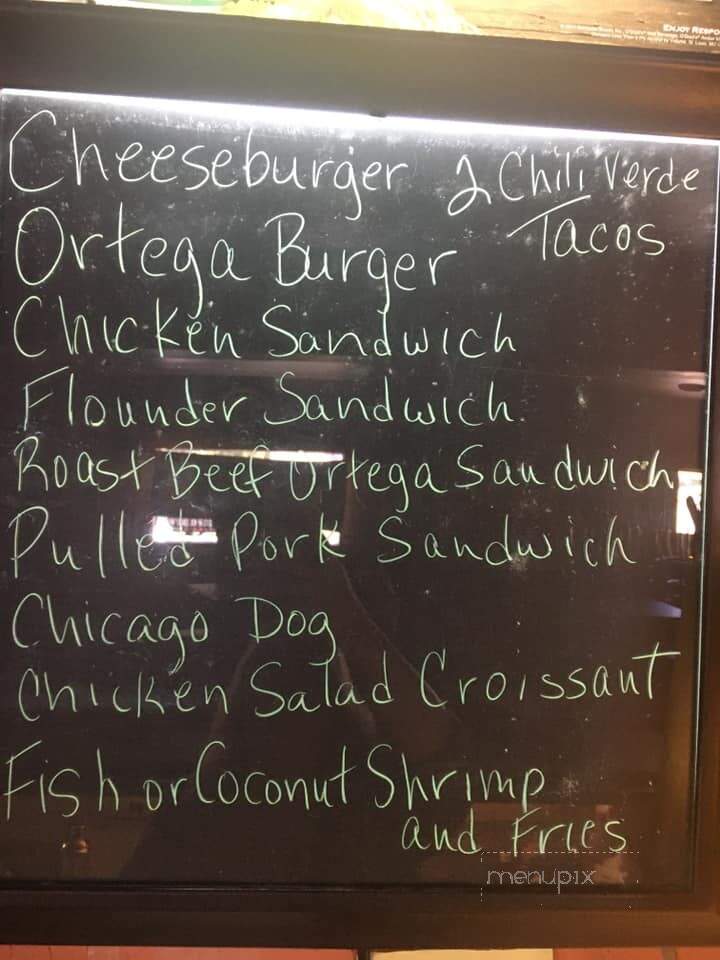 ENJOY RESPO
Cheeseburger 2 Chili Verde
Tacos
Ortega Burger
Chicken Sandwich
Flounder Sandwich
Roast Beef Ortega Sandwich
Pulled Pork Sandwich
Chicago Dog
Chicken Salad Croissant
Fish or Coconut Shrimp
and Fries
menupix